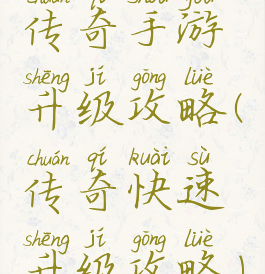 chuán qí shǒu yóu
传奇手游
shēng jí gōng lüè
升级攻略(
chuán qí kuài sù
传奇快速
shēng jí gōng lüè
升级攻略)